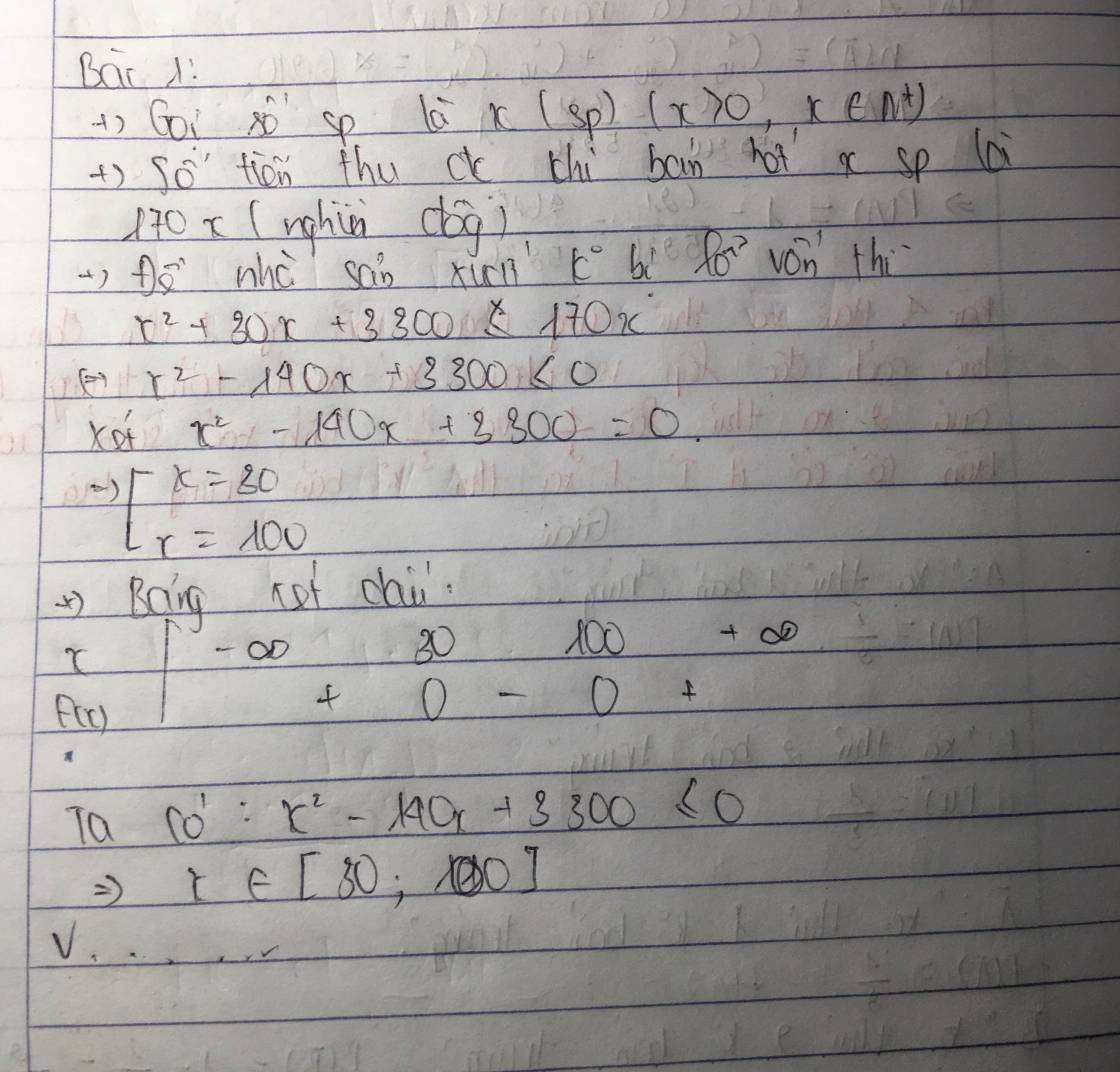 Bài 1:
+) Gọi số sp là x (sp) (x > 0, x ∈ N*)
+) Số tiền thu đc khi bán hết x sp là
170x (nghìn đồg)
+) Để nhà sản xuất k° bị lỗ vốn thì
x² + 30x + 3300 ≤ 170x
⇔ x² - 140x + 3300 < 0
Xét x² - 140x + 3300 = 0.
=> [ x = 30
x = 100
+) Bảng xét dấu:
x -∞ 30 100 +∞
f(x) + 0 - 0 +
Ta có: x² - 140x + 3300 ≤ 0
=> x ∈ [30; 100]
V.......